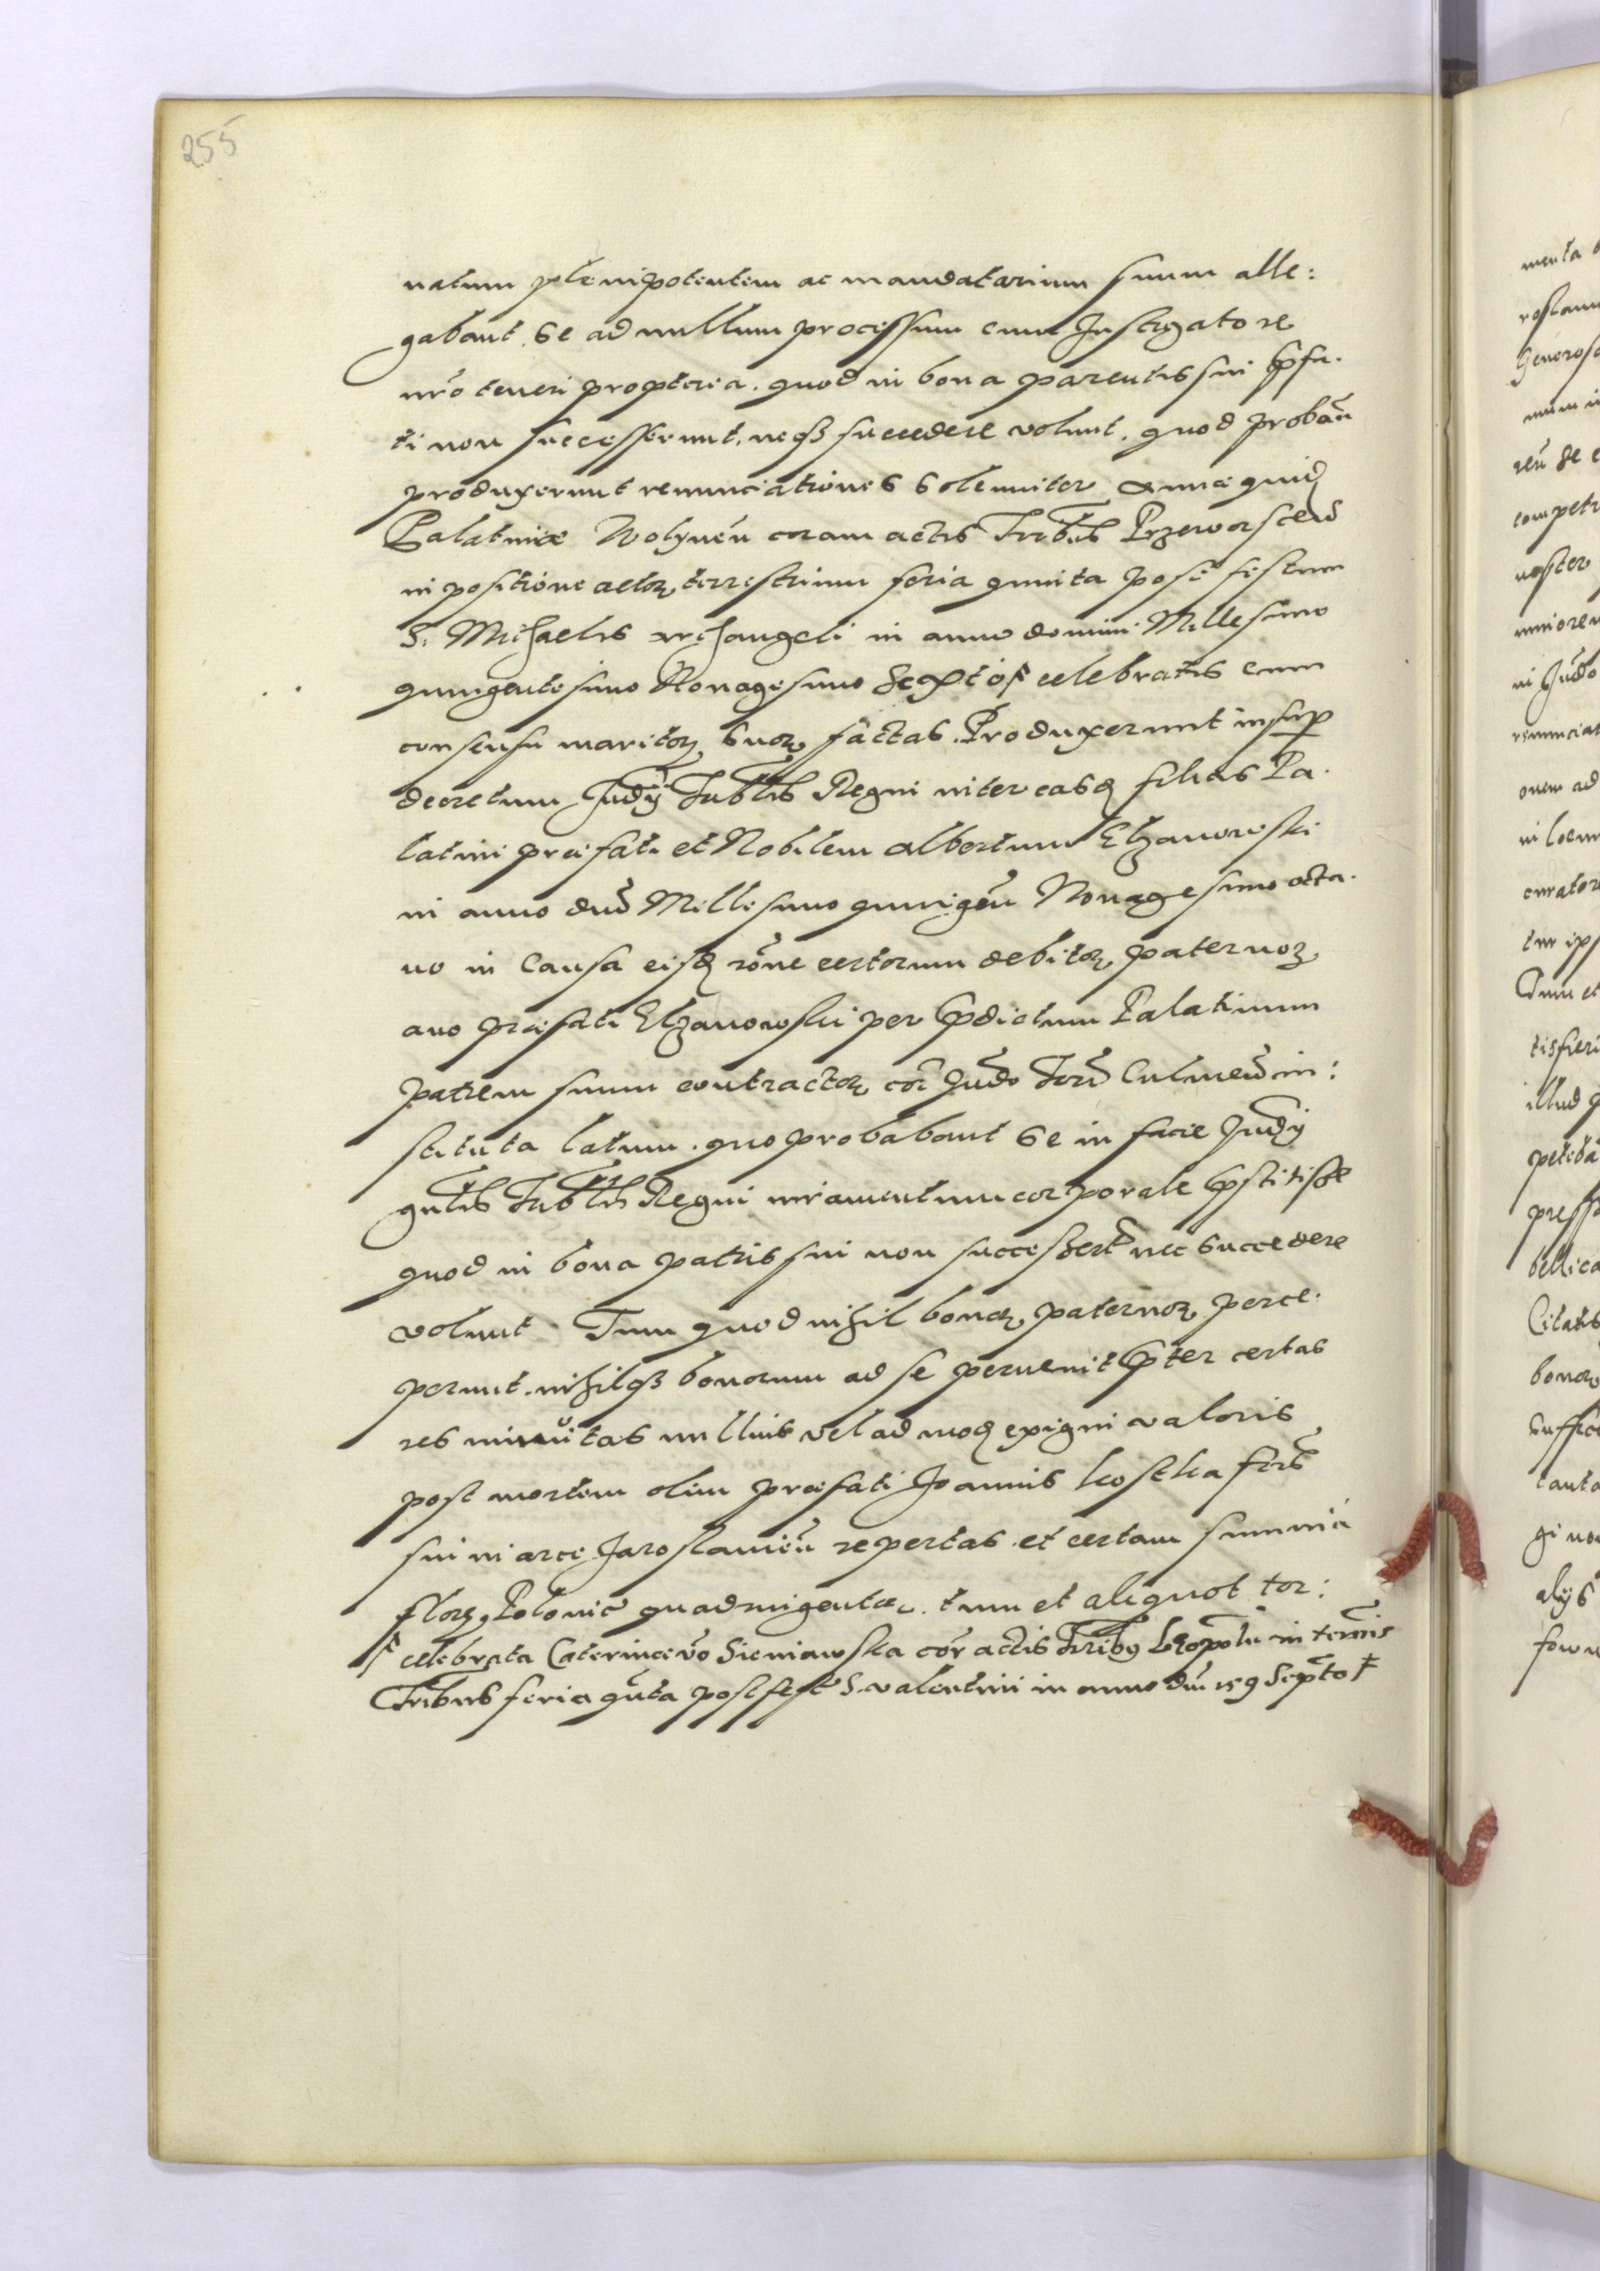 255
natum plenipotentem ac mandatarium suum alle:
gabant. se ad nullum processum cum Instigatore
nro teneri propterea. quod in bona parentis sui pfa.
ti non successerunt, neqz succedere volunt. quod proban
produxerunt renunciationes solenniter Annæ quid
Palatinæ Wolynen coram actis Tribus Przeworscen
in positione actor terrestrium feria quinta post festum
S. Michaelis archangeli in anno domini Millesimo
quingentesimo Nonagesimo Septo celebratis cum
consensu maritor suor factas. Produxerunt insup
decretum Judy Tribtlis Regni inter easd filias Pa.
latini præfati et Nobilem albertum Elzanowski
in anno dni Millesimo quingen Nonagesimo octa.
uo in Causa eisd rone certorum debitor paternor
auo præfati Elzanowski per pdictum Palatinum
patrem suum contractor cor Judo Terr Culmen in:
stituta latum. quo probabant se in facie Judy
gnlis Tribtlis Regni iuramentum corporale pstitisse
quod in bona patris sui non successert nec succedere
volunt. Tum quod nihil bonor paternor perce.
perunt. nihilqz bonorum ad se peruenit pter certas
res minutas nullius vel admod exigui valoris
post mortem olim præfati Joannis Kostka fris
sui in arce Jaroslauien repertas. et certam summa
flor Polonic quadringentæ. tum et aliquot tor:
celebrata Caterinæ vo Sieniawska cor actis Tribus Leopolin in termis
Tribus feria quta post fest S. valentini in anno dni 159 Septo
menta
Generosa
num
competi
noster
in Judo
renunciat
onem ad
in locum
curatore
tur ips
Tum et
tisfieri
illud
petebā
press
bellica
Citatis
bonor
suffice
tanta
gi non
alijs